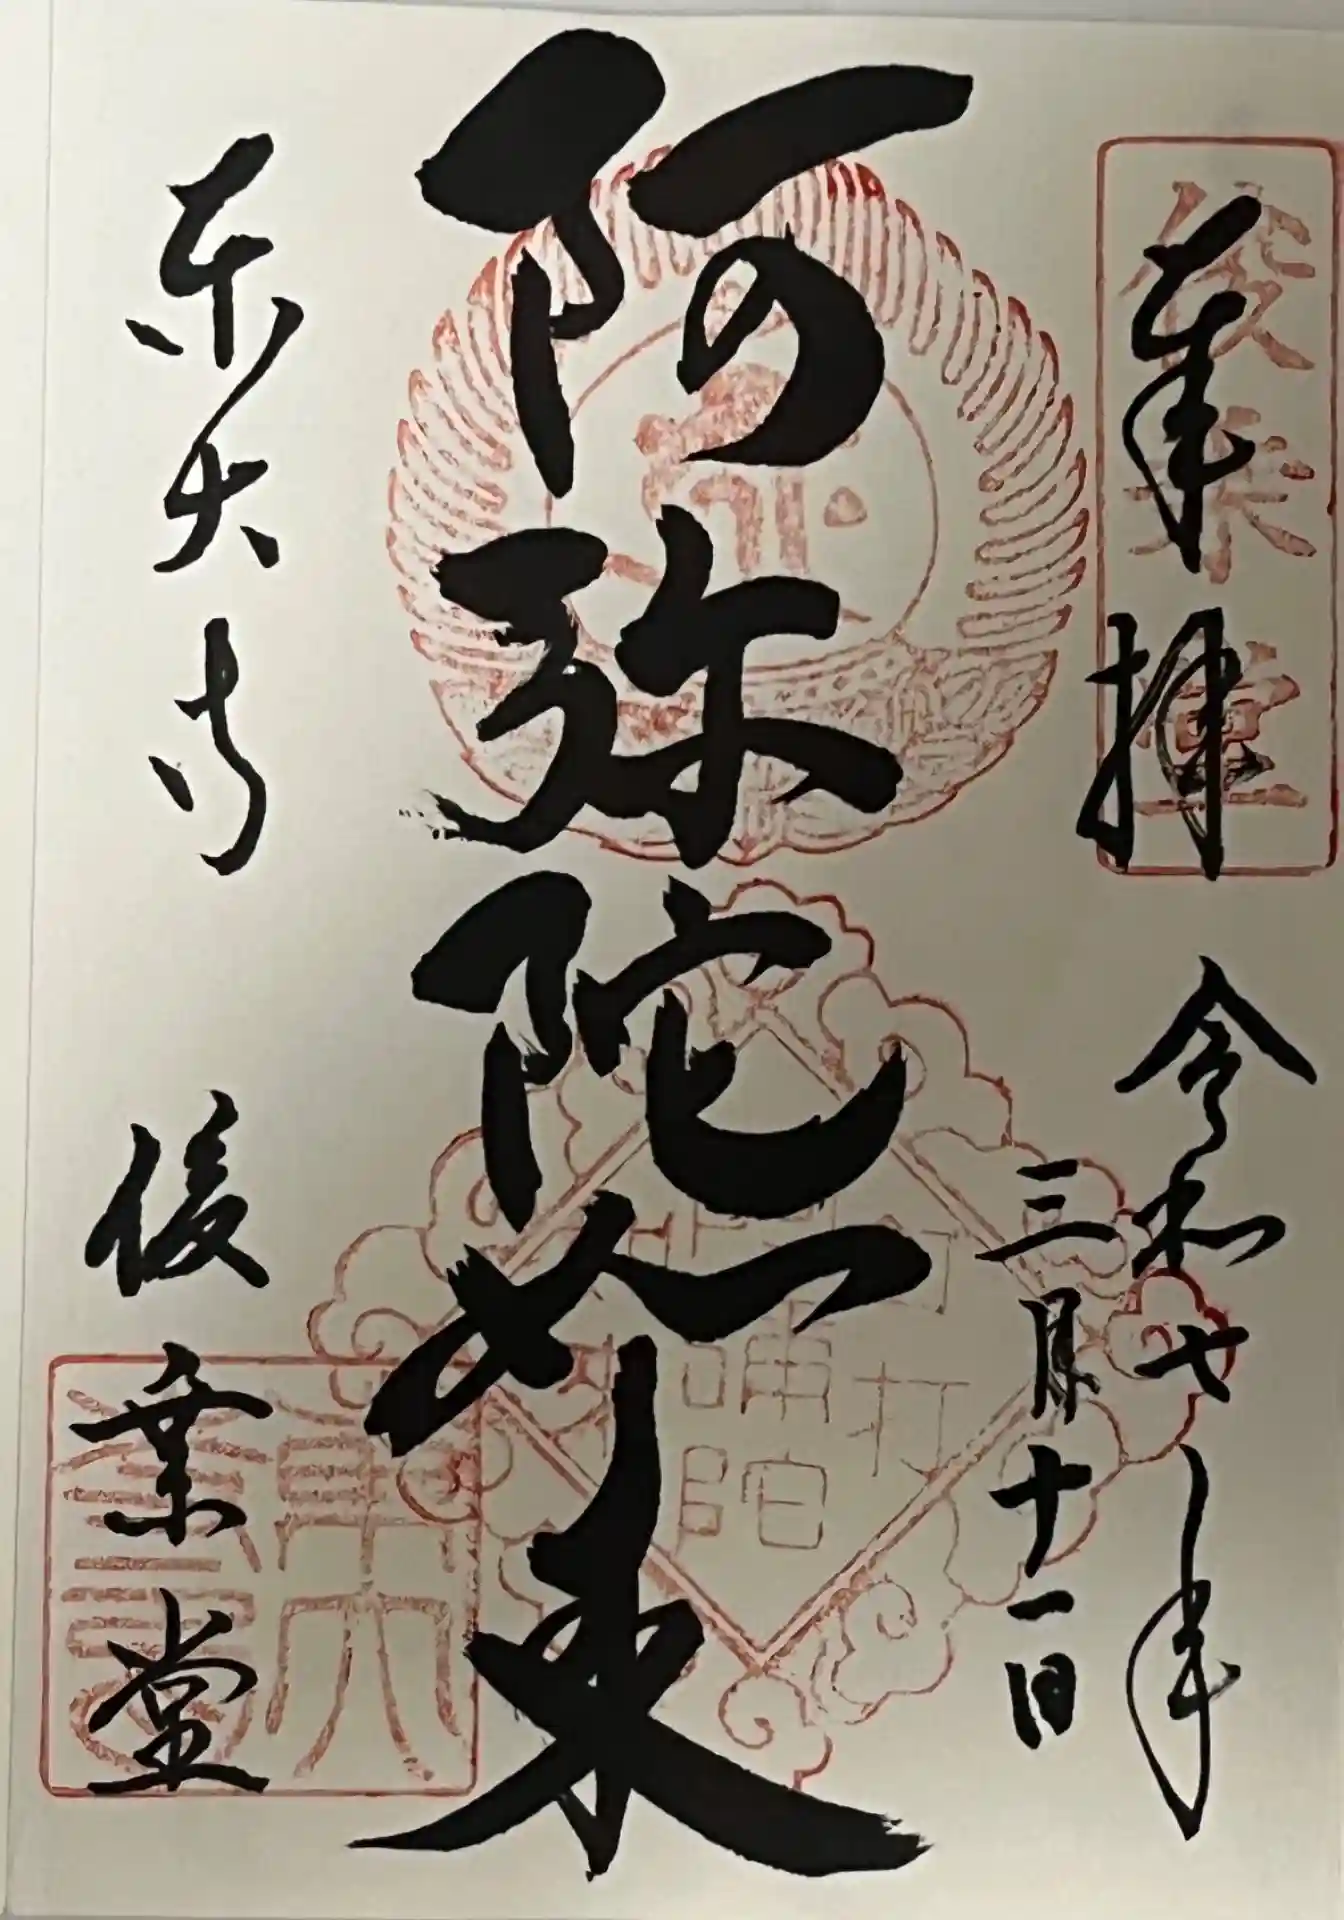 俊乗堂
奉拝 令和七年
三月十一日
阿弥陀如来
東大寺 俊乗堂